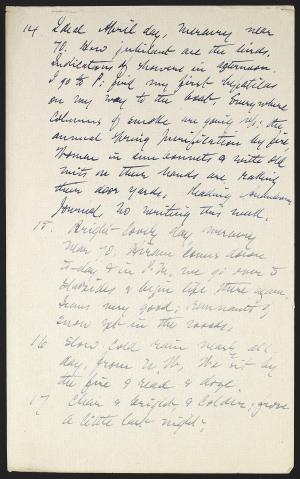 14 Ideal April day, mercury near
70. How jubilant are the birds.
Indications of showers in afternoon.
I go to P; find my first hepaticas
on my way to the boat. Everywhere
columns of smoke are going up; the
annual spring purification by fire,
Women in sun-bonnets & with old
mits on their hands are raking
their door yards. Reading
Journal. No writing this week.
15. Bright lovely day, mercury
near 70. Hiram comes down
to-day & in P.M. we go over to
Slabsides & begin life there again.
Seems very good; remnants of
snow yet in the woods.
16 Slow cold rain nearly all
day, from N. W. We sit by
the fire & read & doze.
17 Clear & bright & colder; froze
a little last night;